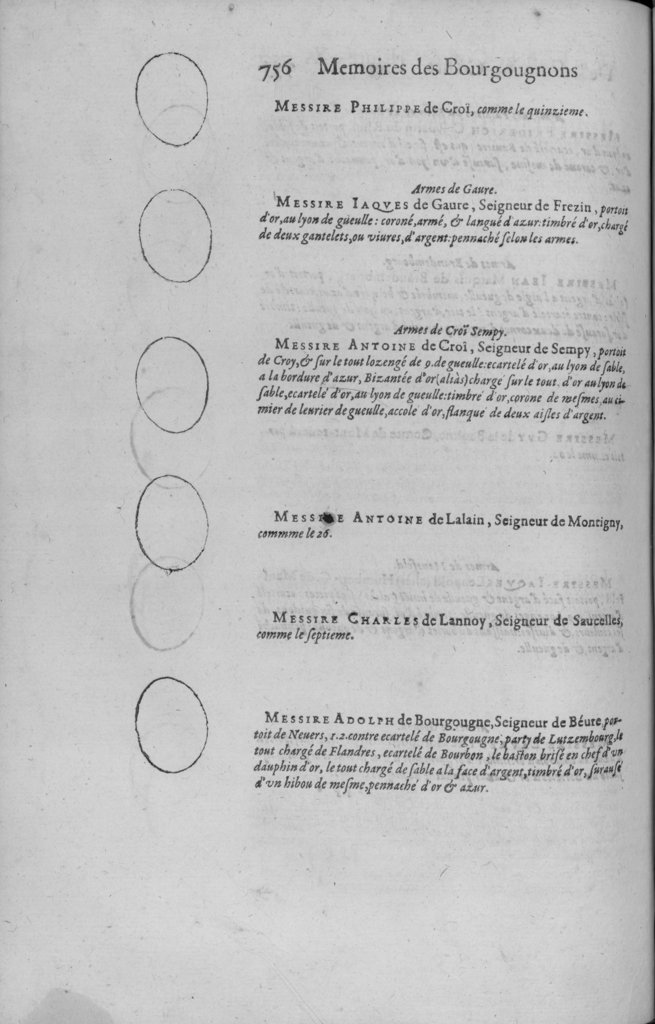 756 Memoires des Bourgougnons
MESSIRE PHILIPPE de Croï, comme le quinzieme.
Armes de Gaure.
MESSIRE IAQVES de Gaure, Seigneur de Frezin, portoit
d'or, au lyon de gueulle: coroné, armé, & langué d'azur: timbré d'or, chargé
de deux gantelets, ou viures, d'argent: pennaché selon les armes.
Armes de Croï Sempy.
MESSIRE ANTOINE de Croï, Seigneur de Sempy, portoit
de Croy, & sur le tout lozengé de 9. de gueulle: ecartelé d'or, au lyon de sable,
a la bordure d'azur, Bizantée d'or (aliàs) chargé sur le tout d'or au lyon de
sable, ecartelé d'or, au lyon de gueulle: timbré d'or, corone de mesmes, au ci-
mier de leurier de gueulle, accolé d'or, flanque de deux aisles d'argent.
MESSIRE ANTOINE de Lalain, Seigneur de Montigny,
commme le 26.
MESSIRE CHARLES de Lannoy, Seigneur de Saucelles,
comme le septieme.
MESSIRE ADOLPH de Bourgougne, Seigneur de Béure, por-
toit de Neuers, 1.2. contre ecartelé de Bourgougne, party de Lutzembourg, le
tout chargé de Flandres, ecartelé de Bourbon, le baston brisé en chef d'vn
dauphin d'or, le tout chargé de sable a la face d'argent, timbré d'or,
d'vn hibou de mesme, pennaché d'or & azur.